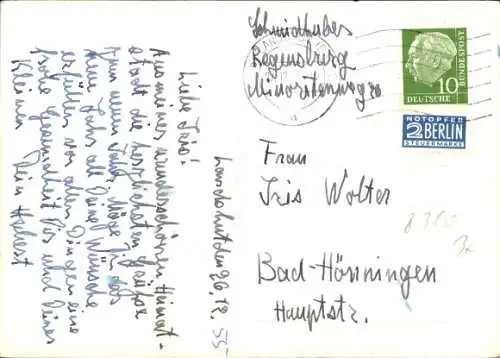 Schmidhuber
Regensburg
Minoritenweg 20
10
DEUTSCHE
BUNDESPOST
NOTOPFER
2 BERLIN
STEUERMARKE
Frau
Iris Wolter
Bad-Hönningen
Hauptstr.
Landshut den 26.12.55
Liebe Iris!
Aus meiner wunderschönen Heimat-
stadt die herzlichsten Grüsse
zum neuen Jahr. Möge Dir das
neue Jahr all Deine Wünsche
erfüllen vor allen Dingen eine
frohe Gesundheit Dir und Deiner
Kleinen Dein Hubert